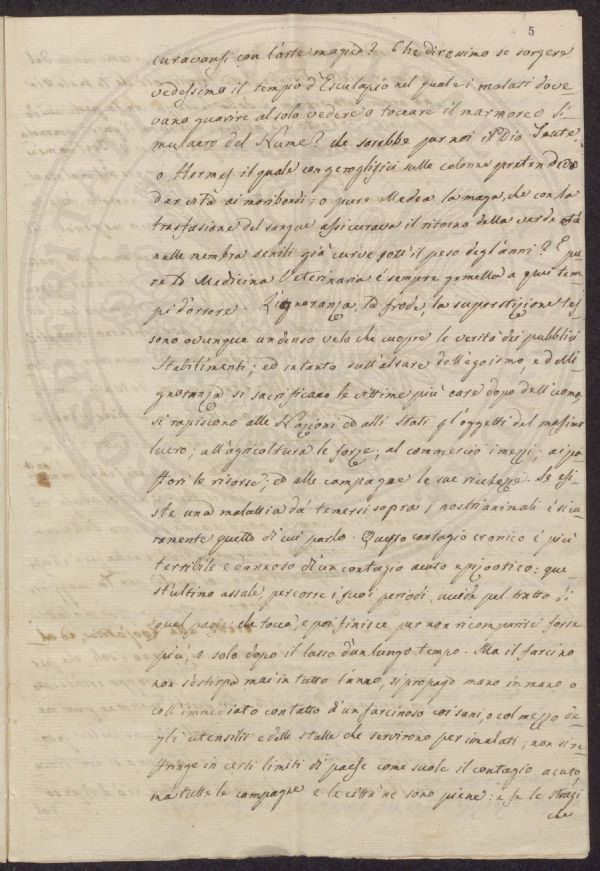 5
curavansi con l'arte magica? Che diressimo se sorgere
vedessimo il tempio d'Esculapio nel quale i malati dove-
vano guarire al solo vedere o toccare il marmoreo Si-
mulacro del Nume? che sarebbe per noi il Dio Taute,
o Hermes il quale con geroglifici sulle colonne pretendeva
dar vita ai moribondi; o pure Medea la maga, che con la
trasfusione del sangue assicurava il ritorno della verde età
nelle membra senili già curve sott'il peso degl'anni? E pu-
re la Medicina Veterinaria è sempre gemella a quei tem-
pi d'orrore. L'ignoranza, la frode, la superstizione tes-
sono ovunque un denso velo che cuopre le verità dei pubblici
Stabilimenti; ed intanto sull'altare dell'egoismo, e dell'i-
gnoranza si sacrificano le vittime più care dopo dell'uomo,
si rapiscono alle Nazioni ed alli Stati gl'oggetti del massimo
lucro; all'agricoltura le forze; al commercio i mezzi; ai pa-
stori le risorse; ed alle campagne le sue ricchezze. Se esi-
ste una malattia da temersi sopra i nostri animali è sicu-
ramente quella di cui parlo. Questo contagio cronico è più
terribile e dannoso di un contagio acuto epizootico: que-
st'ultimo assale, percorre i suoi periodi, uccide pel tratto di
quel paese che tocca, e poi finisce per non ricomparire forse
più, o solo dopo il lasso d'un lungo tempo. Ma il farcino
non s'estirpa mai in tutto l'anno, si propaga mano in mano o
coll'immediato contatto d'un farcinoso coi sani, o col mezzo de-
gli utensilii e delle stalle che servirono per i malati; non si re-
stringe in certi limiti di paese come suole il contagio acuto,
ma tutte le campagne e le città ne sono piene: e se le stragi
che